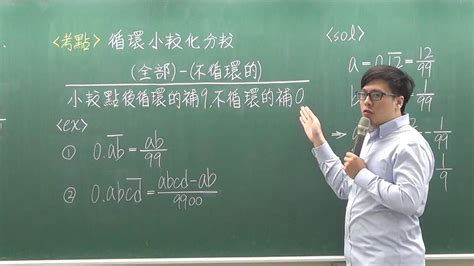 <考點> 循環小數化分數
(全部)-(不循環的)
小數點後循環的補9,不循環的補0
<ex>
① 0.a̅b̅ = ab/99
② 0.abc̅d̅ = abcd-ab/9900
<sol>
a = 0.1̅2̅ = 12/99
b
-1/99
1/9